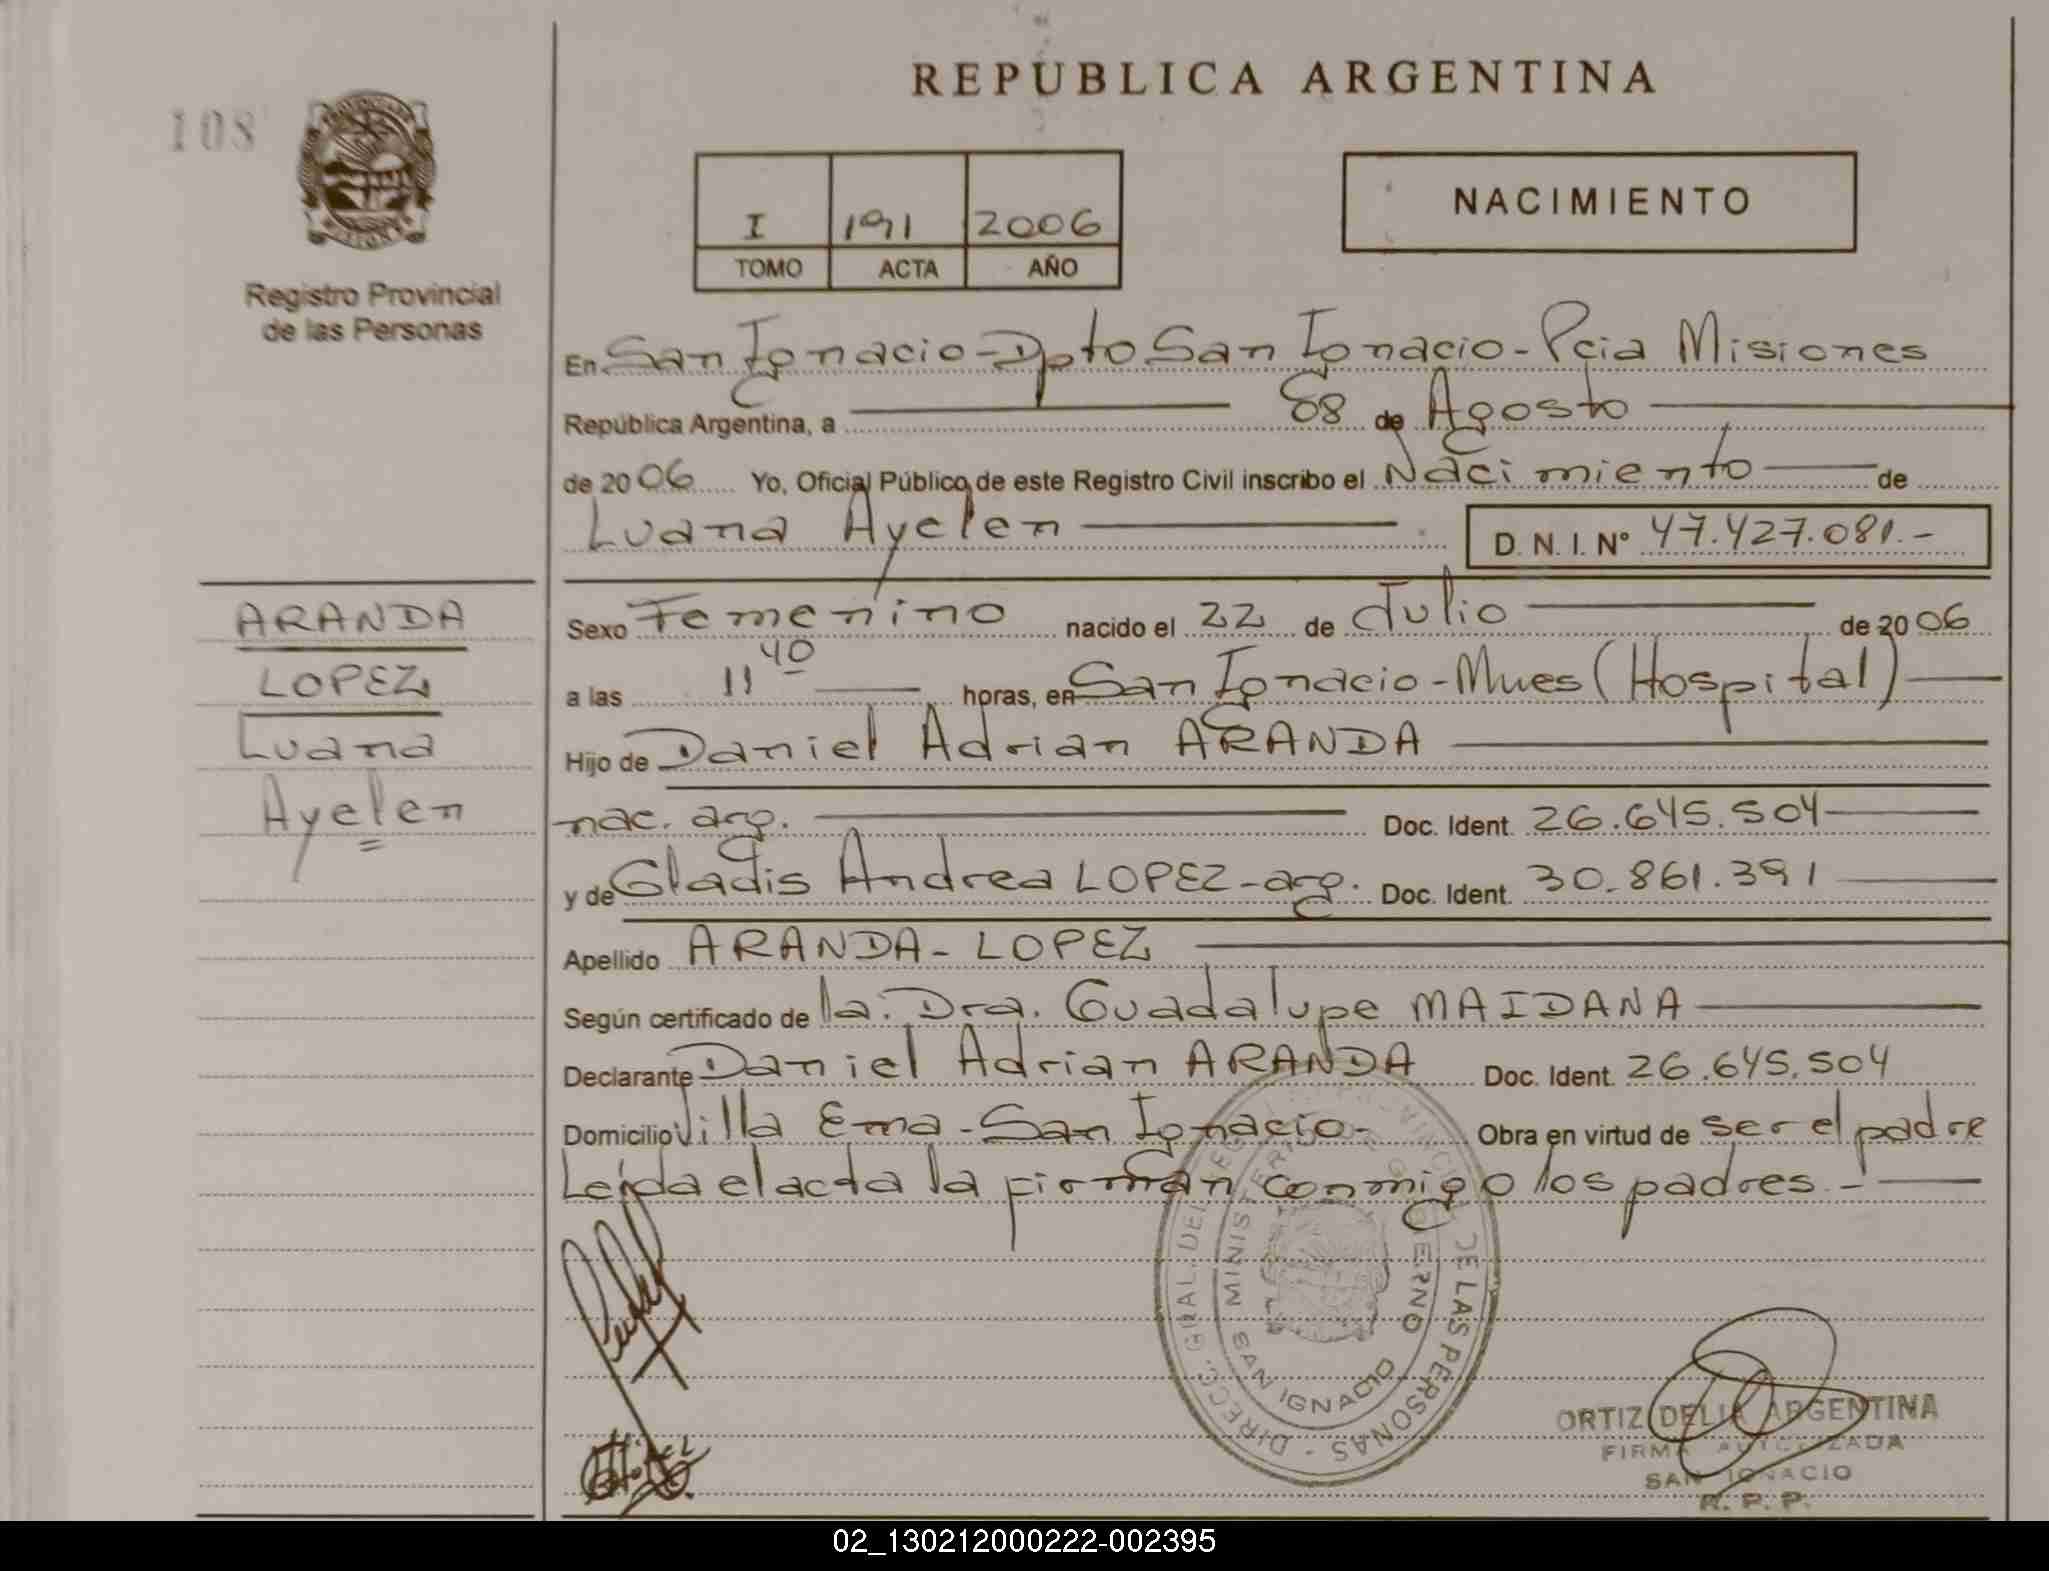 REPUBLICA ARGENTINA
108
MISIONES
Registro Provincial
de las Personas
I 191 2006
TOMO ACTA AÑO
NACIMIENTO
En San Ignacio - Dpto San Ignacio - Pcia Misiones
República Argentina, a 08 de Agosto
de 2006 Yo, Oficial Público de este Registro Civil inscribo el Nacimiento de
Luana Ayelen D. N. I. N° 47.427.081.-
ARANDA
LOPEZ
Luana
Ayelen
Sexo Femenino nacido el 22 de Julio de 2006
a las 11 40 horas, en San Ignacio - Mnes (Hospital)
Hijo de Daniel Adrian ARANDA
nac. arg. Doc. Ident. 26.645.504
y de Gladis Andrea LOPEZ - arg. Doc. Ident. 30.861.391
Apellido ARANDA - LOPEZ
Según certificado de la. Dra. Guadalupe MAIDANA
Declarante Daniel Adrian ARANDA Doc. Ident. 26.645.504
Domicilio Villa Ema - San Ignacio - Obra en virtud de ser el padre
Leida el acta la firman conmigo los padres.-
DIRECC. GRAL. DEL DE LAS PERSONAS
MINISTERIO DE GOBIERNO
SAN IGNACIO
ORTIZ DELIA ARGENTINA
FIRMA AUTORIZADA
SAN IGNACIO
R. P. P.
02_130212000222-002395